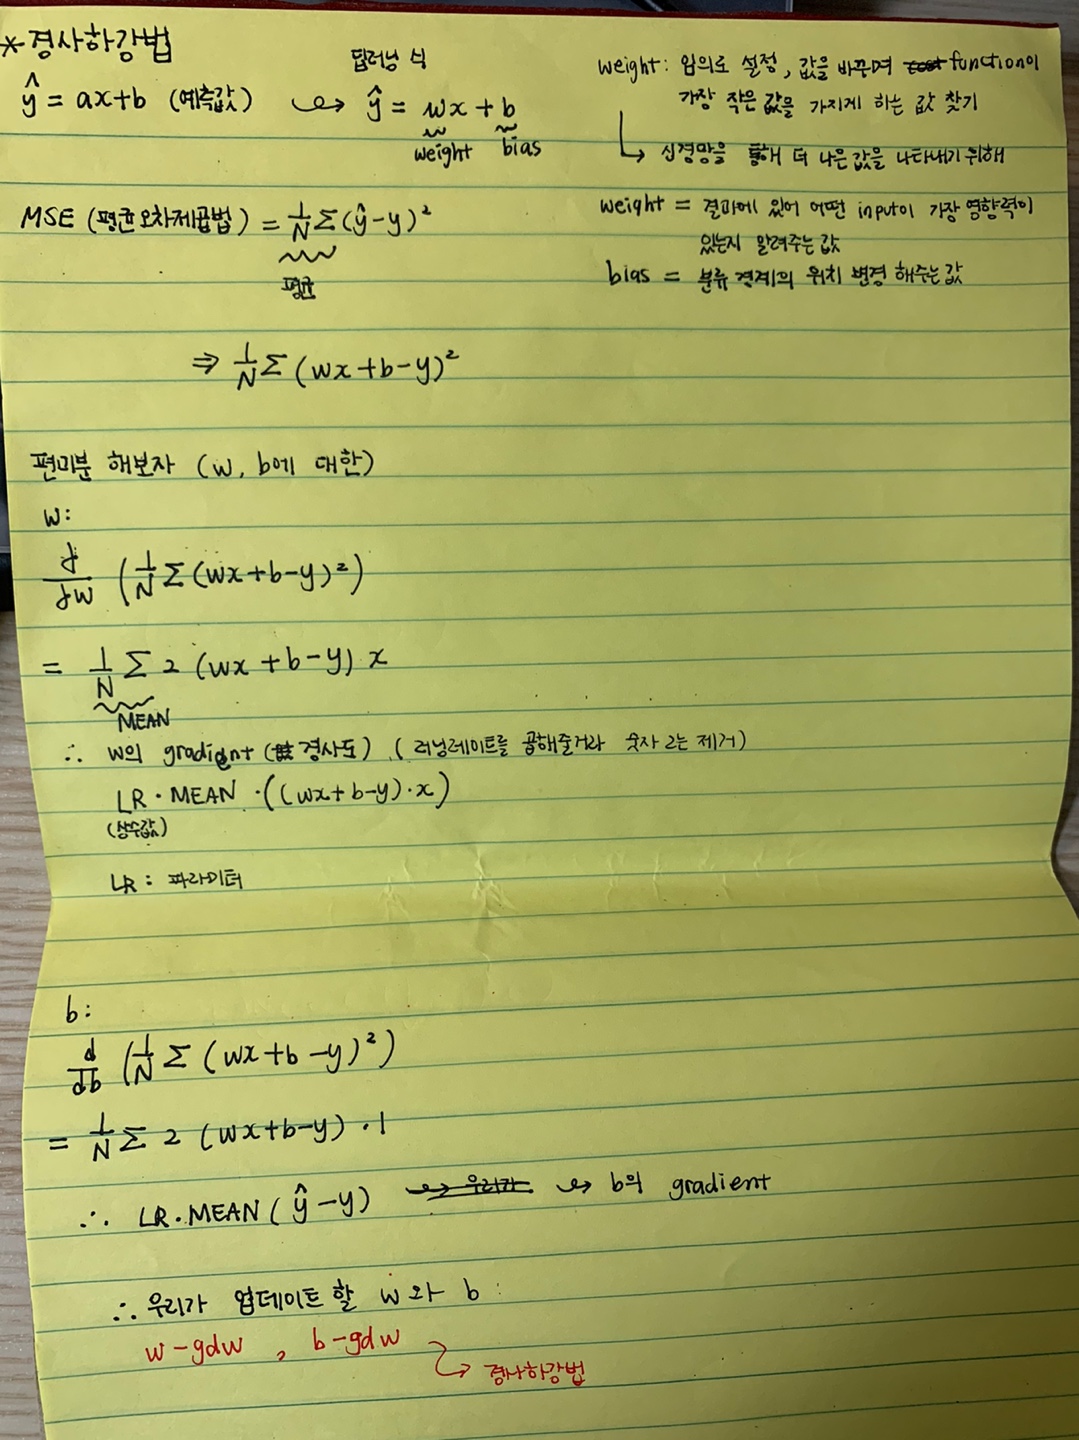 *경사하강법
ŷ = ax+b (예측값) → ŷ = wx + b
딥러닝 식
weight bias
weight: 임의로 설정, 값을 바꾸며 function이
가장 작은 값을 가지게 하는 값 찾기
↳ 신경망을 통해 더 나은 값을 나타내기 위해
weight = 결과에 있어 어떤 input이 가장 영향력이
있는지 알려주는 값
bias = 분류 경계의 위치 변경 해주는 값
MSE (평균오차제곱법) = 1/N Σ(ŷ-y)²
평균
⇒ 1/N Σ (wx+b-y)²
편미분 해보자 (w, b에 대한)
w:
d/dw (1/N Σ (wx+b-y)²)
= 1/N Σ 2 (wx+b-y) x
MEAN
∴ w의 gradient (경사도) (러닝레이트를 곱해줄거라 숫자 2는 제거)
LR · MEAN · ((wx+b-y)·x)
(상수값)
LR: 파라미터
b:
d/db (1/N Σ (wx+b-y)²)
= 1/N Σ 2 (wx+b-y) · 1
∴ LR·MEAN (ŷ-y) → b의 gradient
∴ 우리가 업데이트 할 w와 b:
w-gdw , b-gdw
↳ 경사하강법